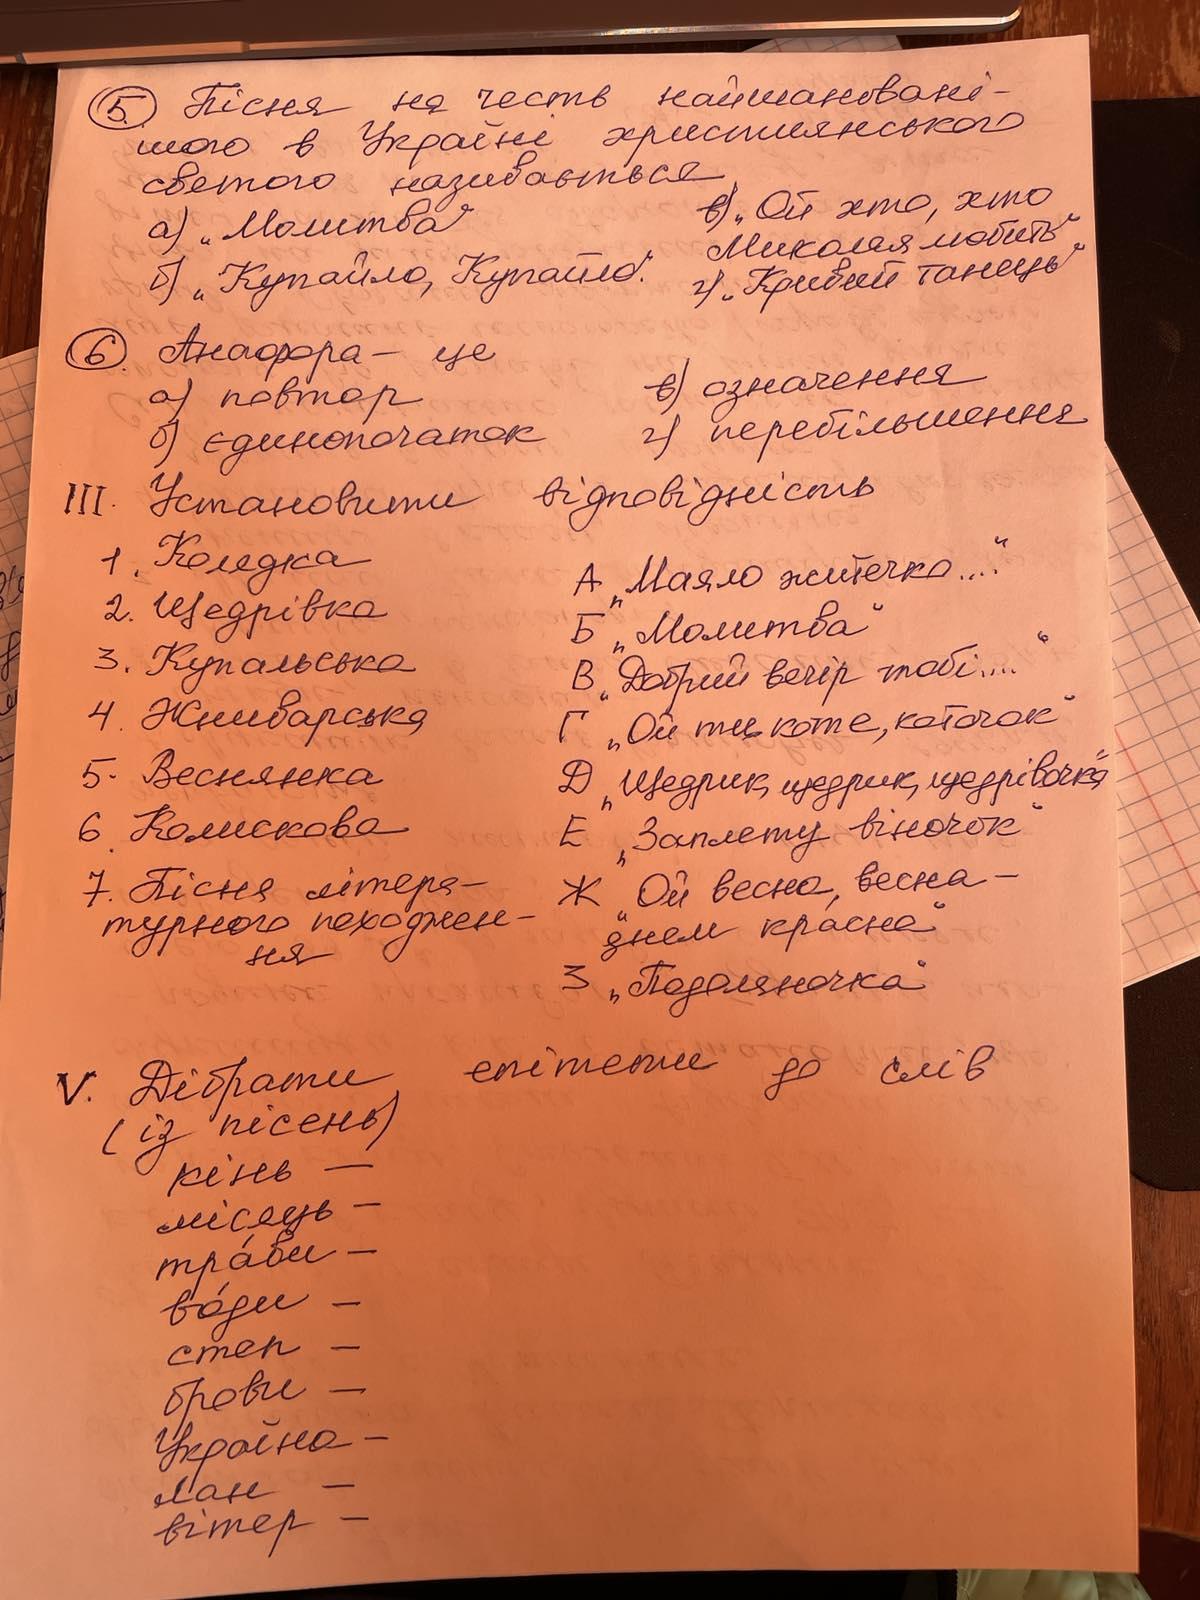 5. Пісня на честь найшановані-
шого в Україні християнського
святого називається
а) „Молитва"
б) „Купайло, Купайло"
в) „Ой хто, хто
Миколая любить"
г) „Кривий танець"
6. Анафора – це
а) повтор
б) єдинопочаток
в) означення
г) перебільшення
III. Установити відповідність
1. Колядка
2. Щедрівка
3. Купальська
4. Жниварська
5. Веснянка
6. Колискова
7. Пісня літера-
турного походжен-
ня
А „Маяло житечко...."
Б „Молитва"
В „Добрий вечір тобі...."
Г „Ой ти коте, коточок"
Д „Щедрик, щедрик, щедрівочка"
Е „Заплету віночок"
Ж „Ой весна, весна –
днем красна"
З „Подоляночка"
V. Дібрати епітети до слів
(із пісень)
кінь –
місяць –
тра́ви –
во́ди –
степ –
брови –
Україна –
лан –
вітер –